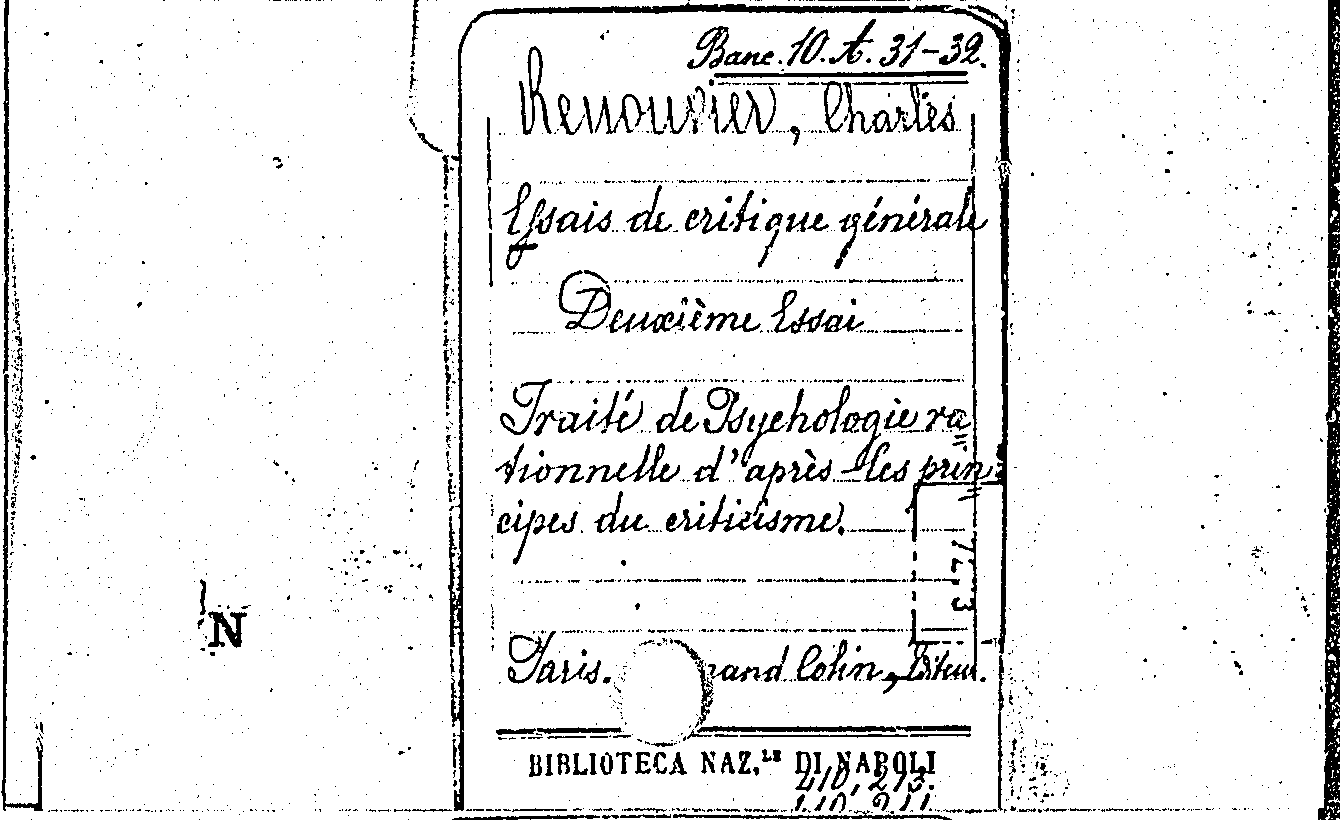 Banc. 10. A. 31-32.
Renouvier, Charles
Essais de critique générale
Deuxième Essai
Traité de Psychologie ra
tionnelle d'après les prin
cipes du criticisme.
74.3
N
Paris. rand Colin, Editeur.
BIBLIOTECA NAZ.LE DI NAPOLI
410,213.